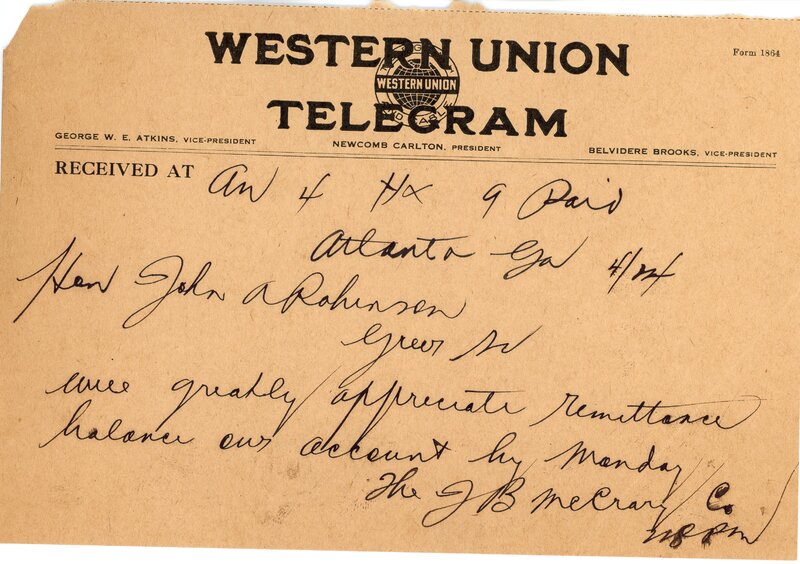 Form 1864
WESTERN UNION
WESTERN UNION
TELEGRAM
GEORGE W. E. ATKINS, VICE-PRESIDENT
NEWCOMB CARLTON, PRESIDENT
BELVIDERE BROOKS, VICE-PRESIDENT
RECEIVED AT
AW 4 Hx 9 Paid
Atlanta Ga 4/24
Hon John A Robinson
Greer SC
Will greatly appreciate remittance
balance our account by Monday
The J B McCrary Co